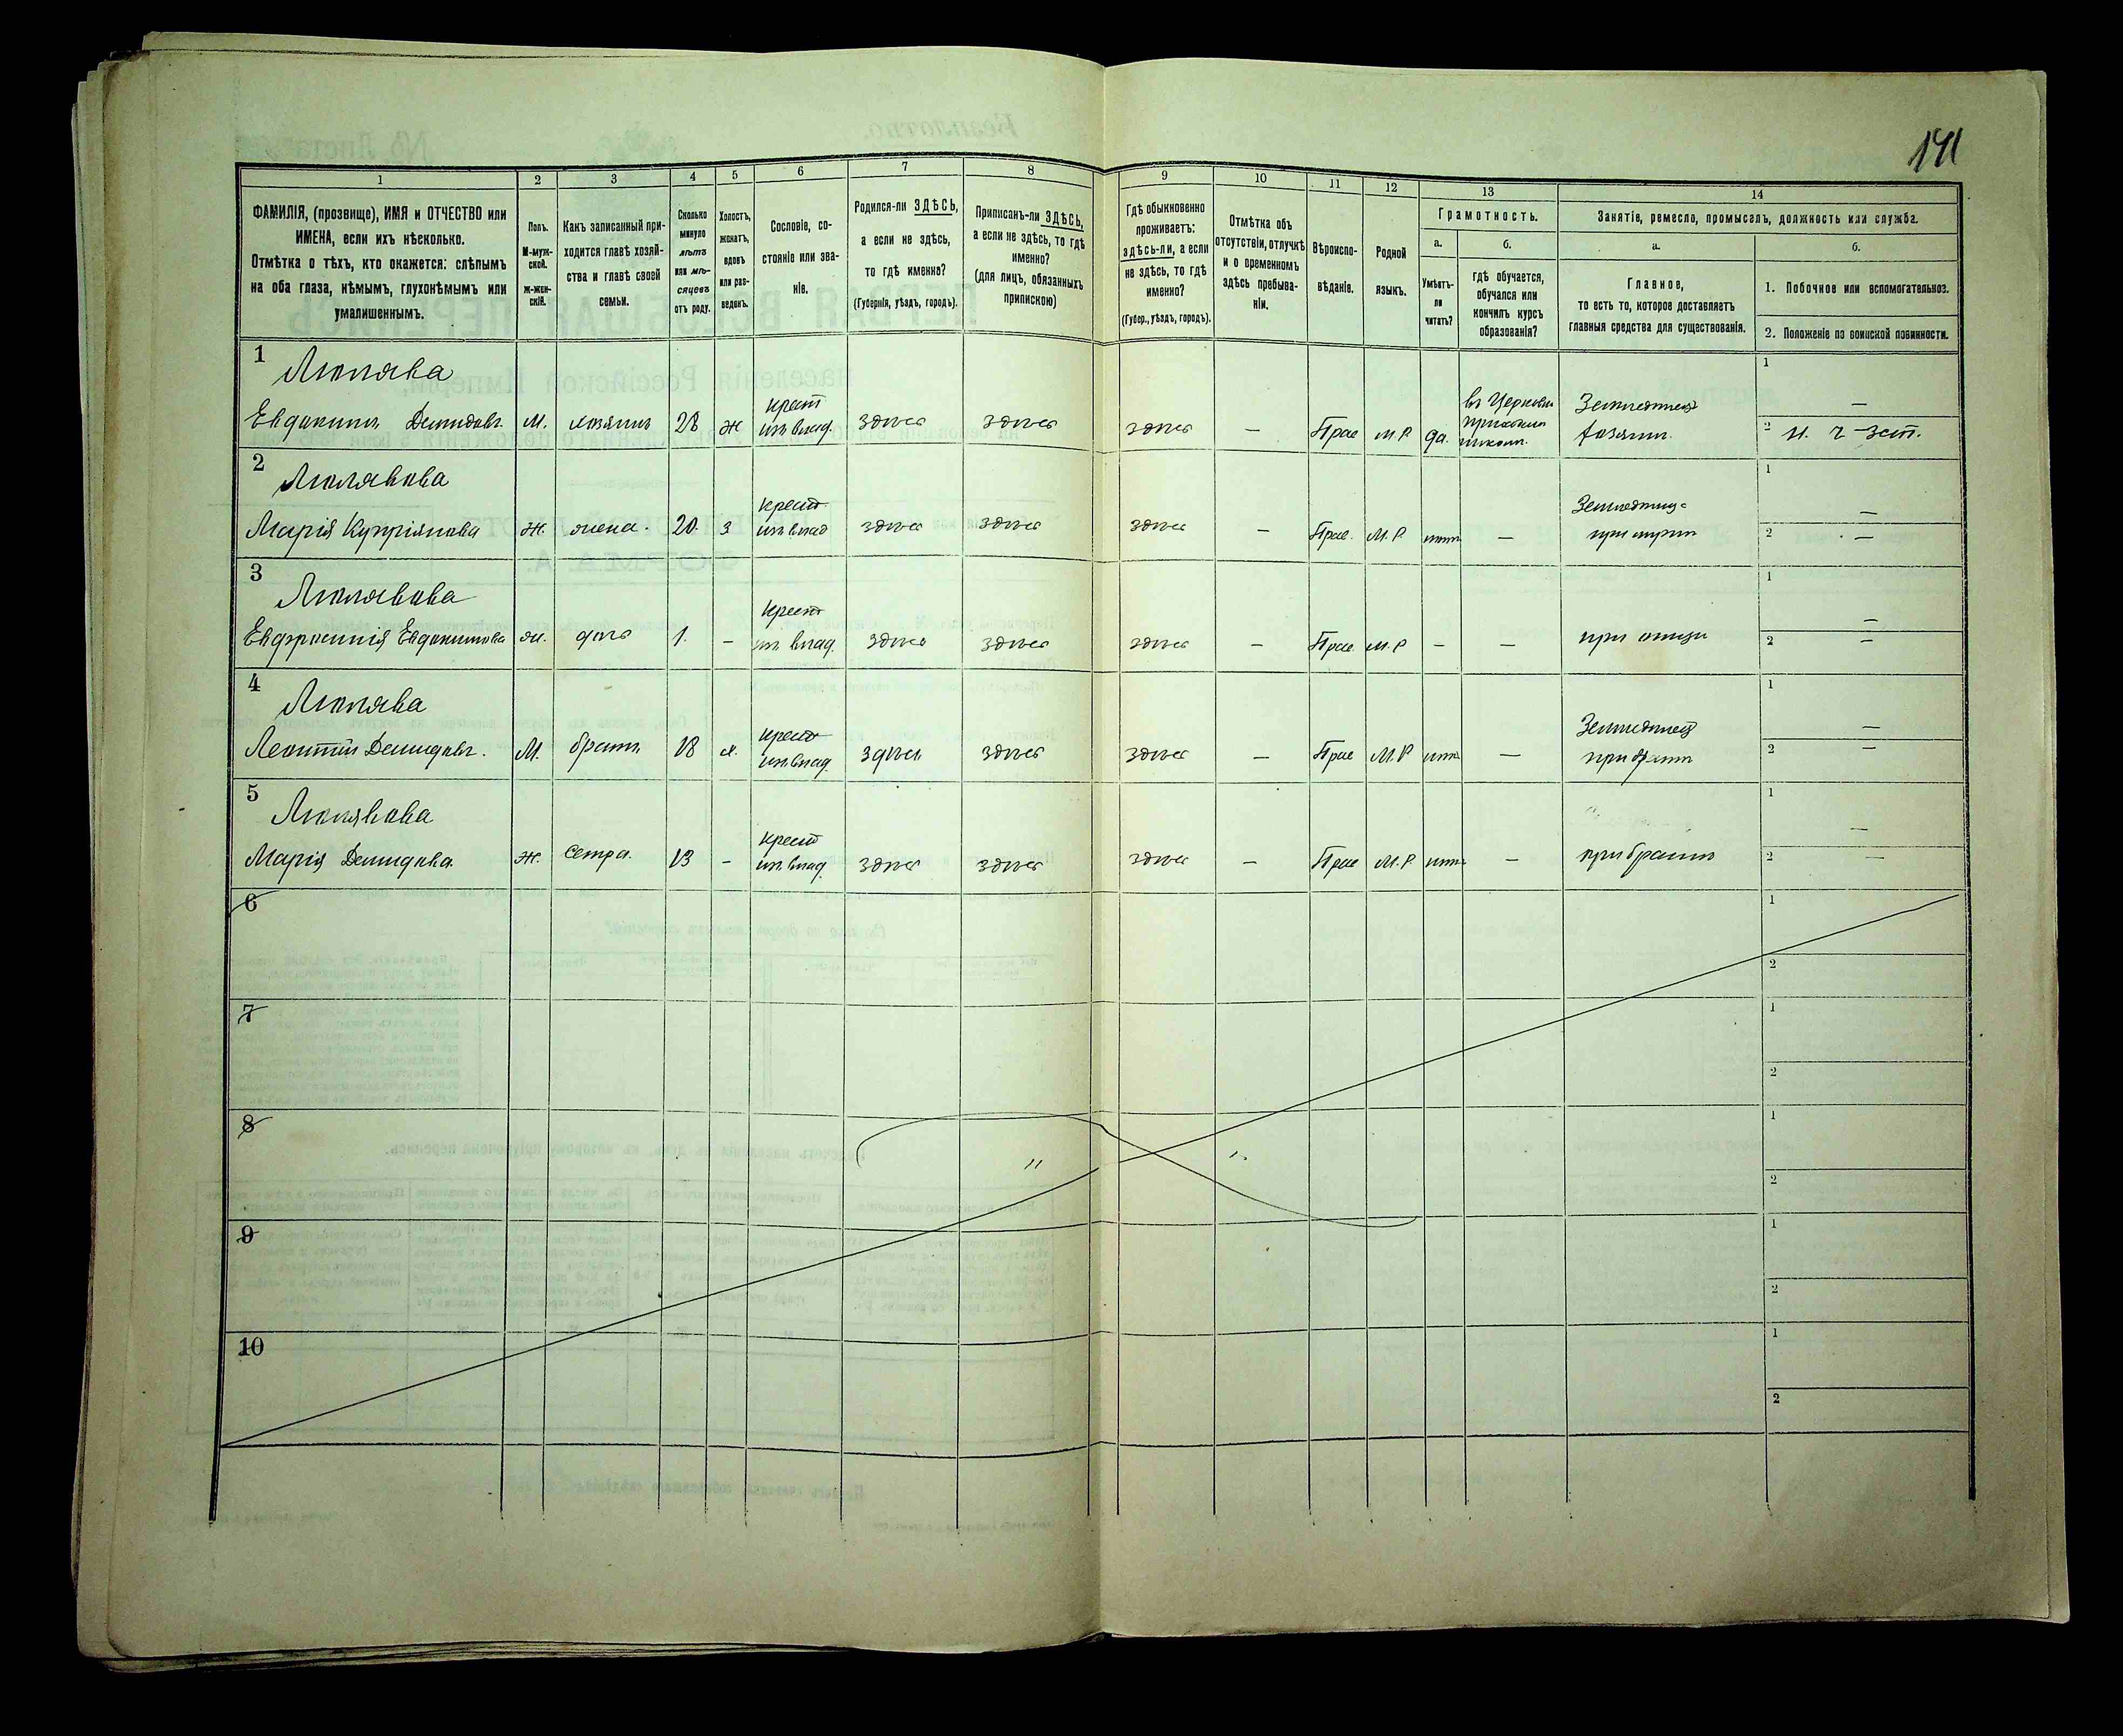 141
1
2
3
4
5
6
7
8
9
10
11
12
13
14
ФАМИЛІЯ, (прозвище), ИМЯ и ОТЧЕСТВО или
ИМЕНА, если ихъ нѣсколько.
Отмѣтка о тѣхъ, кто окажется: слѣпымъ
на оба глаза, нѣмымъ, глухонѣмымъ или
умалишеннымъ.
Полъ.
М-муж-
ской.
Ж-жен-
скій.
Какъ записанный при-
ходится главѣ хозяй-
ства и главѣ своей
семьи.
Сколько
минуло
лѣтъ
или мѣ-
сяцевъ
отъ роду.
Холостъ,
женатъ,
вдовъ
или раз-
веденъ.
Сословіе, со-
стояніе или зва-
ніе.
Родился-ли ЗДѢСЬ,
а если не здѣсь,
то гдѣ именно?
(Губернія, уѣздъ, городъ).
Приписанъ-ли ЗДѢСЬ,
а если не здѣсь, то гдѣ
именно?
(для лицъ, обязанныхъ
припискою)
Гдѣ обыкновенно
проживаетъ:
здѣсь-ли, а если
не здѣсь, то гдѣ
именно?
(Губер., уѣздъ, городъ).
Отмѣтка объ
отсутствіи, отлучкѣ
и о временномъ
здѣсь пребыва-
ніи.
Вѣроиспо-
вѣданіе.
Родной
языкъ.
Грамотность.
а.
Умѣетъ-
ли
читать?
б.
гдѣ обучается,
обучался или
кончилъ курсъ
образованія?
Занятіе, ремесло, промыселъ, должность или служба.
а.
Главное,
то есть то, которое доставляетъ
главныя средства для существованія.
б.
1. Побочное или вспомогательное.
2. Положеніе по воинской повинности.
1
Люлява
Евдокимъ Демидовъ М. хозяинъ 28 ж крест из влад. здѣсь здѣсь здѣсь — Прав М.Р. да. въ Церковн приходск школѣ. Земледѣлецъ хозяинъ.
1 —
2
2
Люлявова
Марія Купріянова ж. жена. 20. з крест из влад здѣсь здѣсь здѣсь — Прав. М.Р. нѣтъ —
1 —
2 —
3
Люлявова
Евфросинія Евдокимова ж. дочь 1. — крест из влад. здѣсь здѣсь здѣсь — Прав. М.Р — — при отцѣ
1 —
2 —
4
Люлява
Леонтій Демидовъ. М. братъ 18 х. крест из влад. здѣсь здѣсь здѣсь — Прав М.Р нѣтъ — Земледѣлецъ при братѣ
1 —
2 —
5
Люлявова
Марія Демидова ж. сестра. 13 — крест из влад. здѣсь здѣсь здѣсь — Прав М.Р. нѣтъ — при братѣ
1 —
2 —
6
1
2
7
1
2
8
1
2
9
1
2
10
1
2